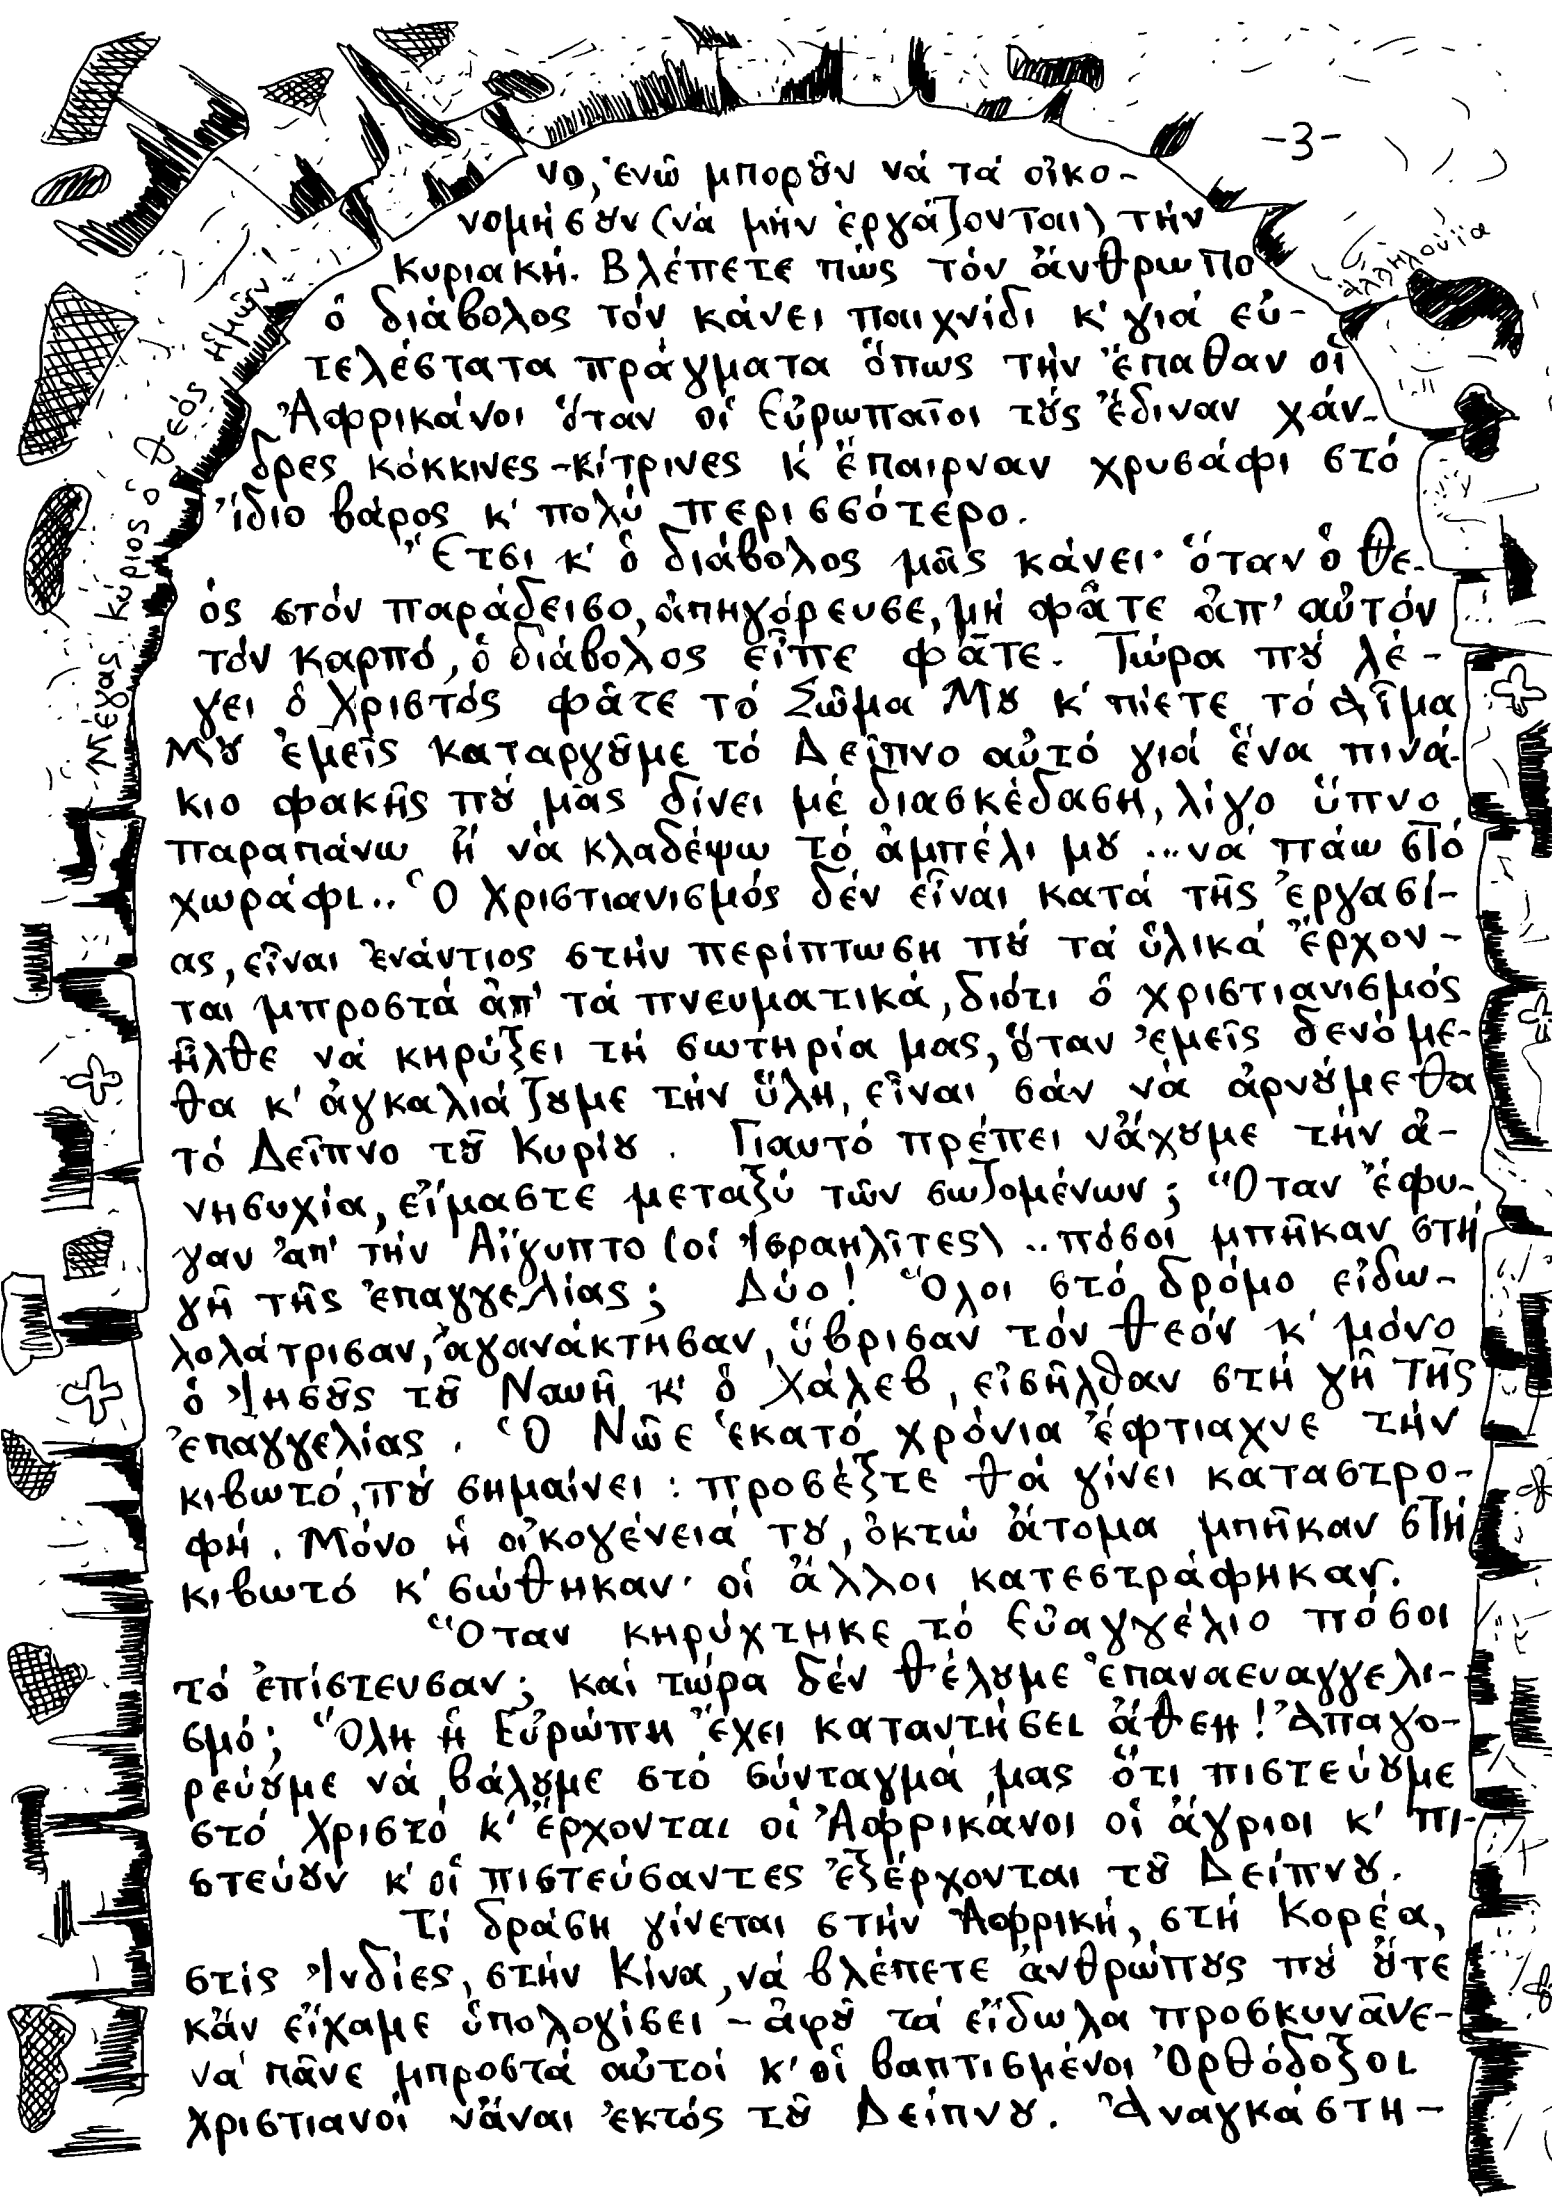 -3-
νο, ἐνῶ μποροῦν νά τά οἰκο-
νομήσουν (νά μήν ἐργάζονται) τήν
Κυριακή. Βλέπετε πώς τόν ἄνθρωπο
ὁ διάβολος τόν κάνει παιχνίδι κ' γιά εὐ-
τελέστατα πράγματα ὅπως τήν ἔπαθαν οἱ
Ἀφρικάνοι ὅταν οἱ Εὐρωπαῖοι τούς ἔδιναν χάν-
δρες κόκκινες-κίτρινες κ' ἔπαιρναν χρυσάφι στό
ἴδιο βάρος κ' πολύ περισσότερο.
Ἔτσι κ' ὁ διάβολος μᾶς κάνει· ὅταν ὁ Θε-
ός στόν παράδεισο, ἀπηγόρευσε, μή φᾶτε ἀπ' αὐτόν
τόν καρπό, ὁ διάβολος εἶπε φᾶτε. Τώρα πού λέ-
γει ὁ Χριστός φᾶτε τό Σῶμα Μου κ' πίετε τό Αἷμα
Μου ἐμεῖς καταργοῦμε τό Δεῖπνο αὐτό γιά ἕνα πινά-
κιο φακῆς πού μᾶς δίνει μέ διασκέδαση, λίγο ὕπνο
παραπάνω ἤ νά κλαδέψω τό ἀμπέλι μου ... νά πάω στό
χωράφι.. Ὁ Χριστιανισμός δέν εἶναι κατά τῆς ἐργασί-
ας, εἶναι ἐνάντιος στήν περίπτωση πού τά ὑλικά ἔρχον-
ται μπροστά ἀπ' τά πνευματικά, διότι ὁ χριστιανισμός
ἦλθε νά κηρύξει τή σωτηρία μας, ὅταν ἐμεῖς δενόμε-
θα κ' ἀγκαλιάζουμε τήν ὕλη, εἶναι σάν νά ἀρνούμεθα
τό Δεῖπνο τοῦ Κυρίου. Γιαυτό πρέπει νἄχουμε τήν ἀ-
νησυχία, εἴμαστε μεταξύ τῶν σωζομένων; Ὅταν ἔφυ-
γαν ἀπ' τήν Αἴγυπτο (οἱ Ἰσραηλῖτες) .. πόσοι μπῆκαν στή
γῆ τῆς ἐπαγγελίας; Δύο! Ὅλοι στό δρόμο εἰδω-
λολάτρισαν, ἀγανάκτησαν, ὕβρισαν τόν Θεόν κ' μόνο
ὁ Ἰησοῦς τοῦ Ναυῆ κ' ὁ Χάλεβ, εἰσῆλθαν στή γῆ τῆς
ἐπαγγελίας. Ὁ Νῶε ἑκατό χρόνια ἔφτιαχνε τήν
κιβωτό, πού σημαίνει: προσέξτε θά γίνει καταστρο-
φή. Μόνο ἡ οἰκογένειά του, ὀκτώ ἄτομα μπῆκαν στή
κιβωτό κ' σώθηκαν· οἱ ἄλλοι κατεστράφηκαν.
Ὅταν κηρύχτηκε τό Εὐαγγέλιο πόσοι
τό ἐπίστευσαν; καί τώρα δέν θέλουμε ἐπαναευαγγελι-
σμό; Ὅλη ἡ Εὐρώπη ἔχει καταντήσει ἄθεη! Ἀπαγο-
ρεύουμε νά βάλουμε στό σύνταγμά μας ὅτι πιστεύουμε
στό Χριστό κ' ἔρχονται οἱ Ἀφρικάνοι οἱ ἄγριοι κ' πι-
στεύουν κ' οἱ πιστεύσαντες ἐξέρχονται τοῦ Δείπνου.
Τί δράση γίνεται στήν Ἀφρική, στή Κορέα,
στίς Ἰνδίες, στήν Κίνα, νά βλέπετε ἀνθρώπους πού οὔτε
κἄν εἴχαμε ὑπολογίσει - ἀφοῦ τά εἴδωλα προσκυνᾶνε-
νά πᾶνε μπροστά αὐτοί κ' οἱ βαπτισμένοι Ὀρθόδοξοι
χριστιανοί νἆναι ἐκτός τοῦ Δείπνου. Ἀναγκάστη-
Μέγας Κύριος ὁ Θεός ἡμῶν!
ἀλληλούϊα